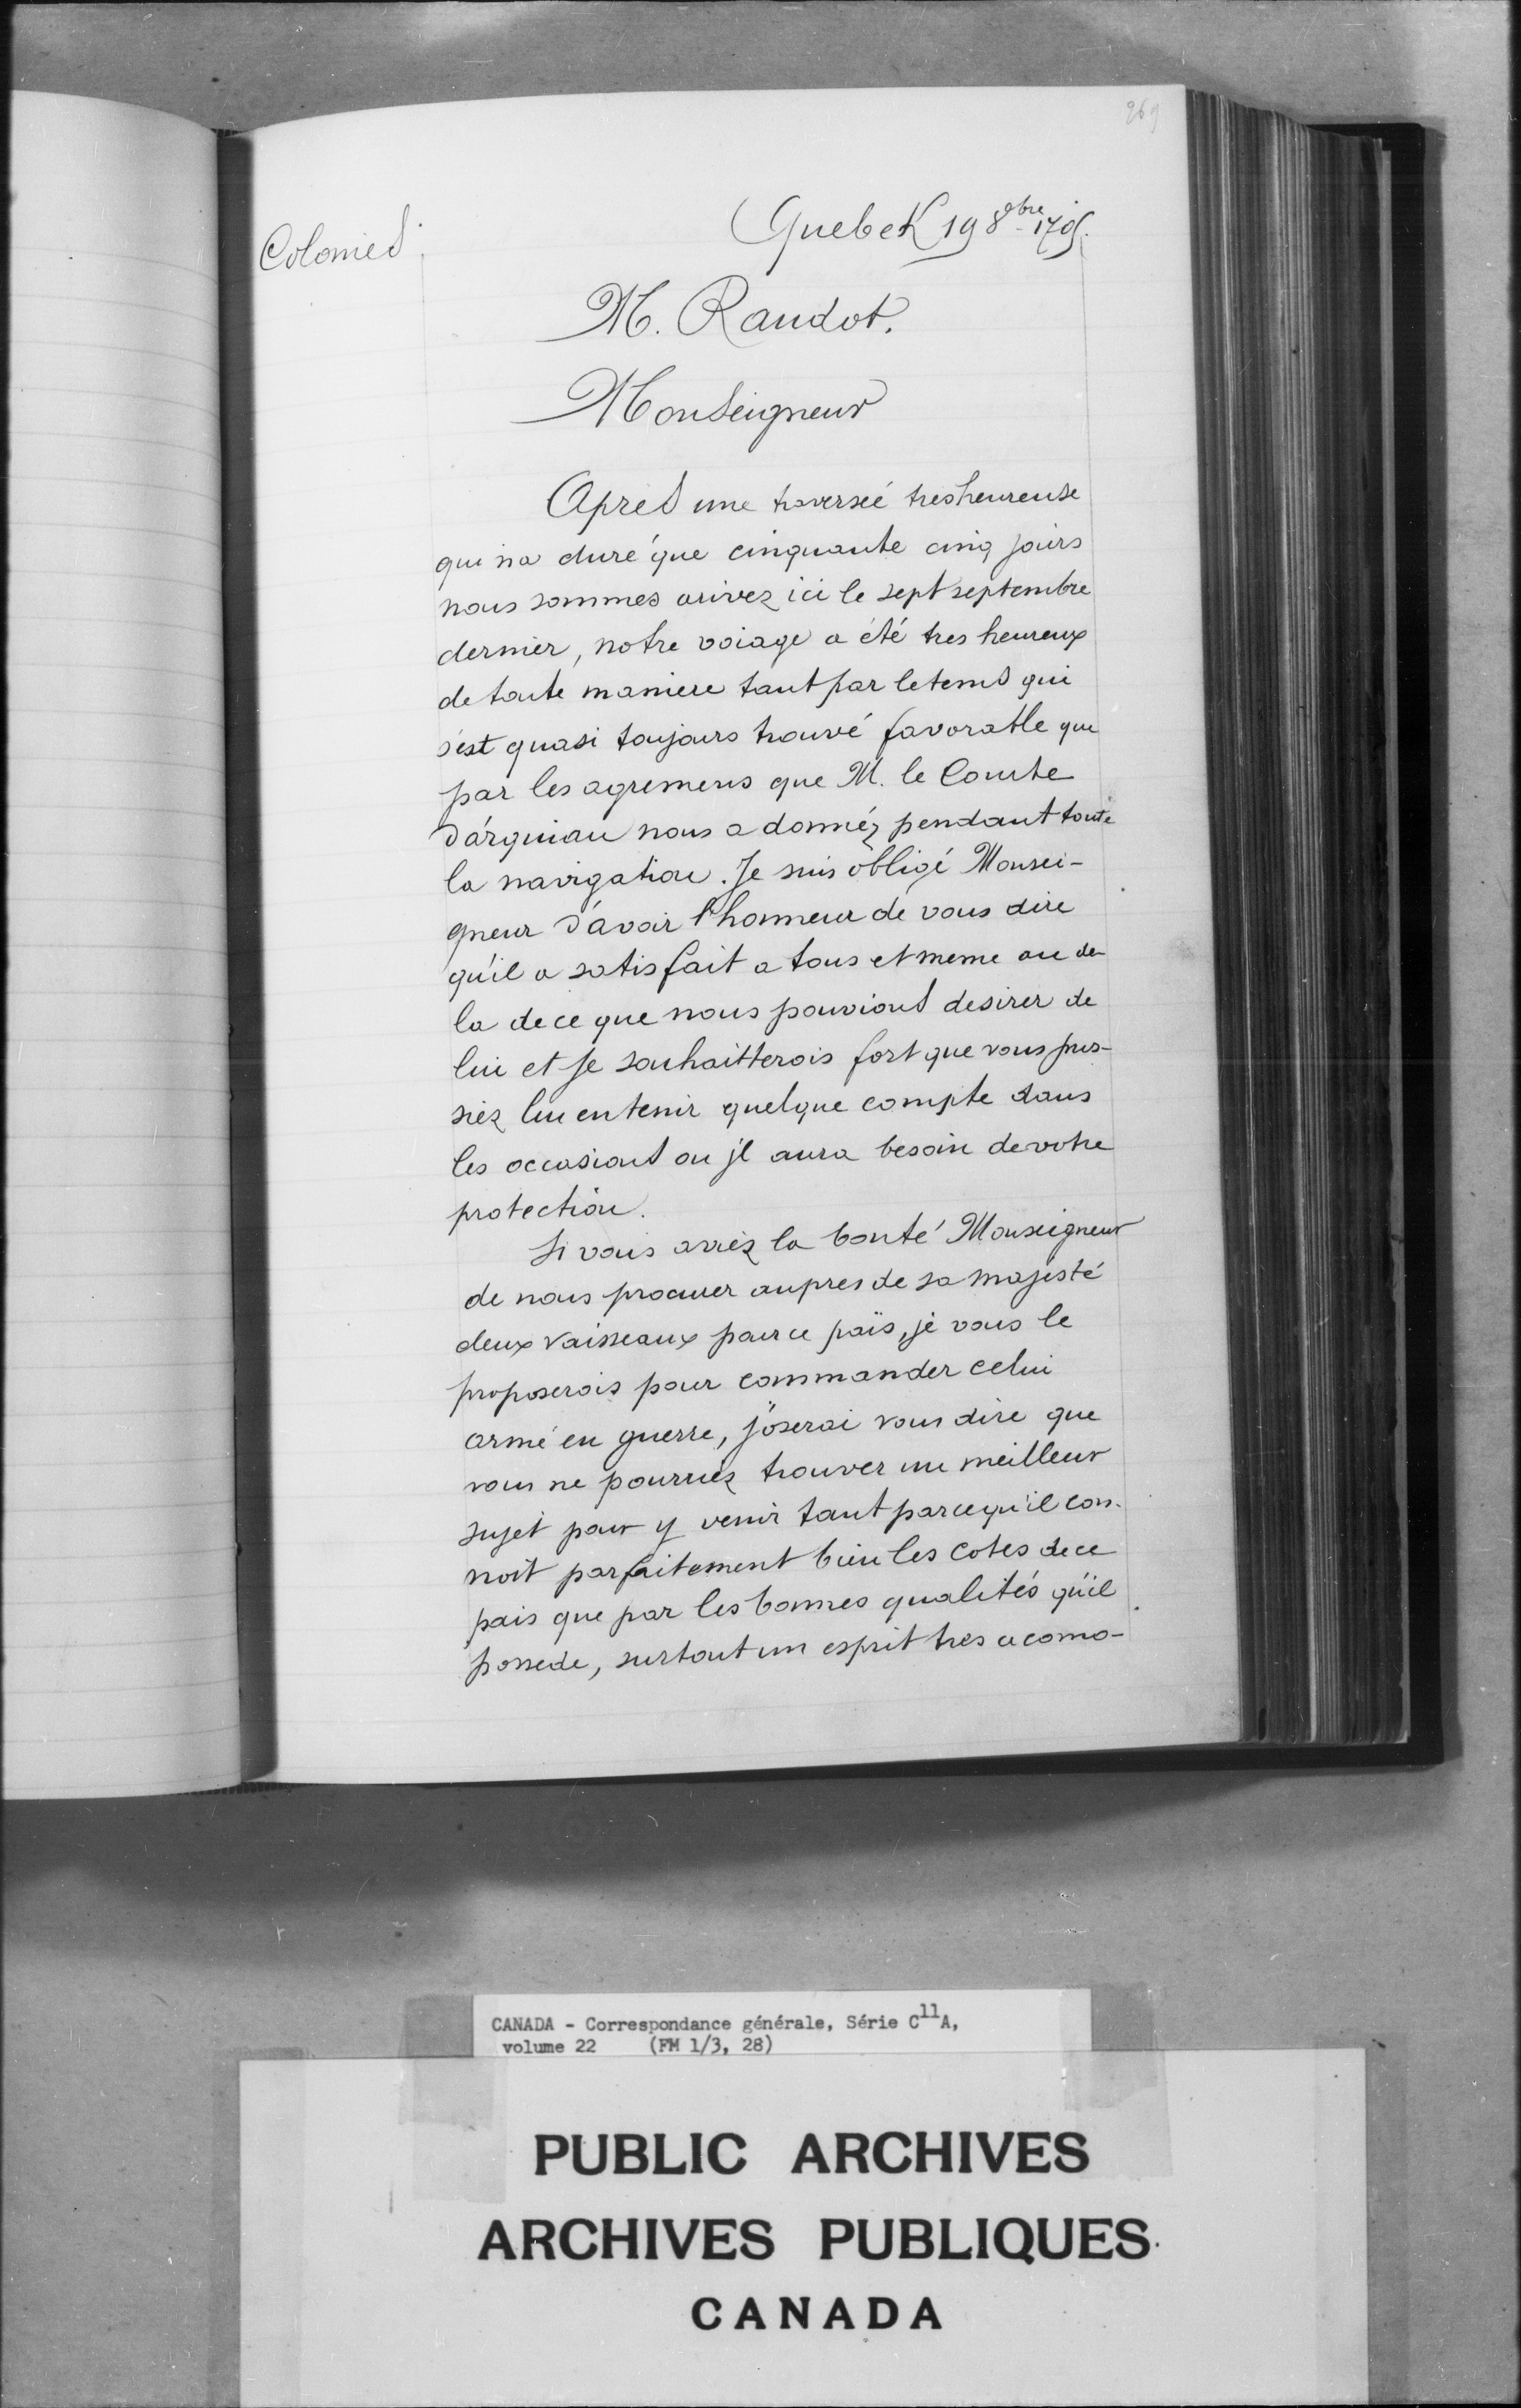 269
Quebek 19 8bre 1705.
Colonies.
M. Raudot.
Monseigneur
Apres une traverseé tresheureuse
qui na duré que cinquante cinq jours
nous sommes arivez ici le sept septembre
dernier, notre voiage a été tres heureux
de toute maniere tant par letems qui
s'est quasi toujours trouvé favorable que
par les agremens que M. le Comte
d'arquian nous a donnéz pendant toute
la navigation. Je suis obligé Monsei-
gneur d'avoir l'honneur de vous dire
qu'il a satisfait a tous et meme au de
la dece que nous pouvions desirer de
lui et je souhaitterois fort que vous pus-
siez lui en tenir quelque compte dans
les occasions ou jl aura besoin devotre
protection.
Si vous aviez la bonté Monseigneur
de nous procurer aupres de sa majesté
deux vaisseaux pour ce païs, je vous le
proposerois pour commander celui
armé en guerre, j'oserai vous dire que
vous ne pourriez trouver un meilleur
sujet pour y venir tant parcequ'il con-
noit parfaitement bien les cotes dece
pais que par les bonnes qualités qu'il
possede, surtout un esprit tres acomo-
CANADA - Correspondance générale, Série C11A,
volume 22 (FM 1/3, 28)
PUBLIC ARCHIVES
ARCHIVES PUBLIQUES
CANADA